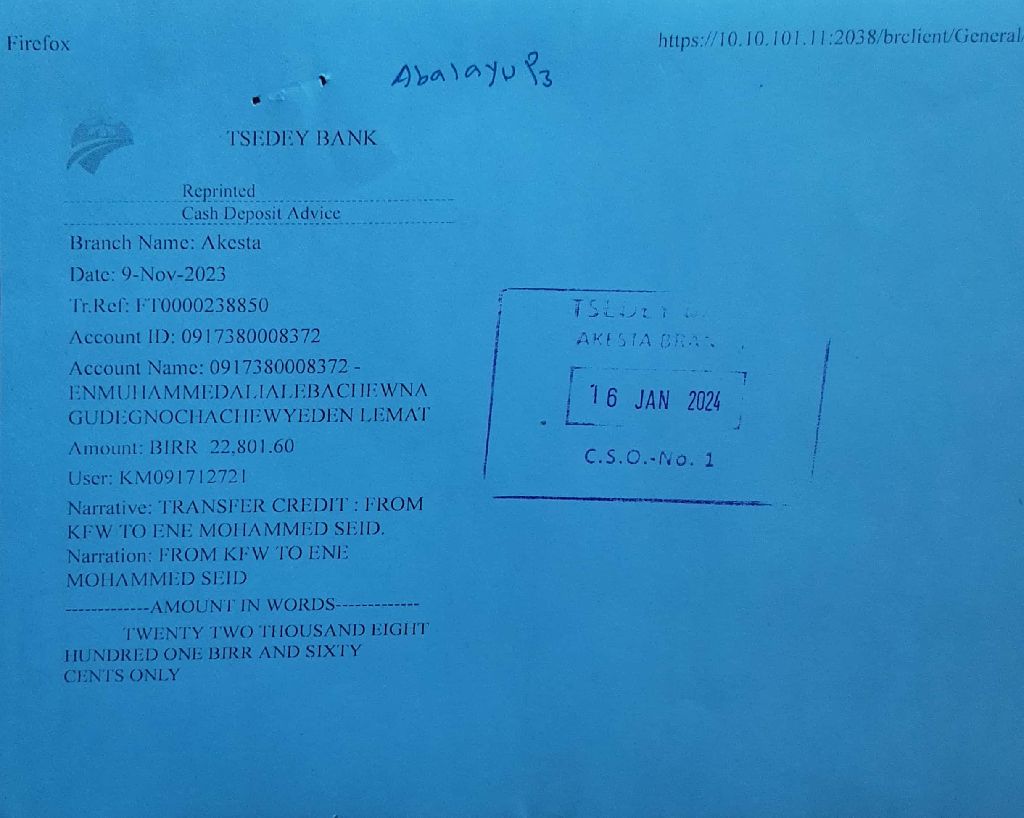 Firefox
https://10.10.101.11:2038/brclient/General/
Abalayu P3
TSEDEY BANK
Reprinted
Cash Deposit Advice
Branch Name: Akesta
Date: 9-Nov-2023
Tr.Ref: FT0000238850
Account ID: 0917380008372
Account Name: 0917380008372 -
ENMUHAMMEDALIALEBACHEWNA
GUDEGNOCHACHEWYEDEN LEMAT
Amount: BIRR 22,801.60
User: KM091712721
Narrative: TRANSFER CREDIT : FROM
KFW TO ENE MOHAMMED SEID.
Narration: FROM KFW TO ENE
MOHAMMED SEID
-------------AMOUNT IN WORDS-------------
TWENTY TWO THOUSAND EIGHT
HUNDRED ONE BIRR AND SIXTY
CENTS ONLY
TSEDEY
AKESTA BRAN
16 JAN 2024
C.S.O.-No. 1